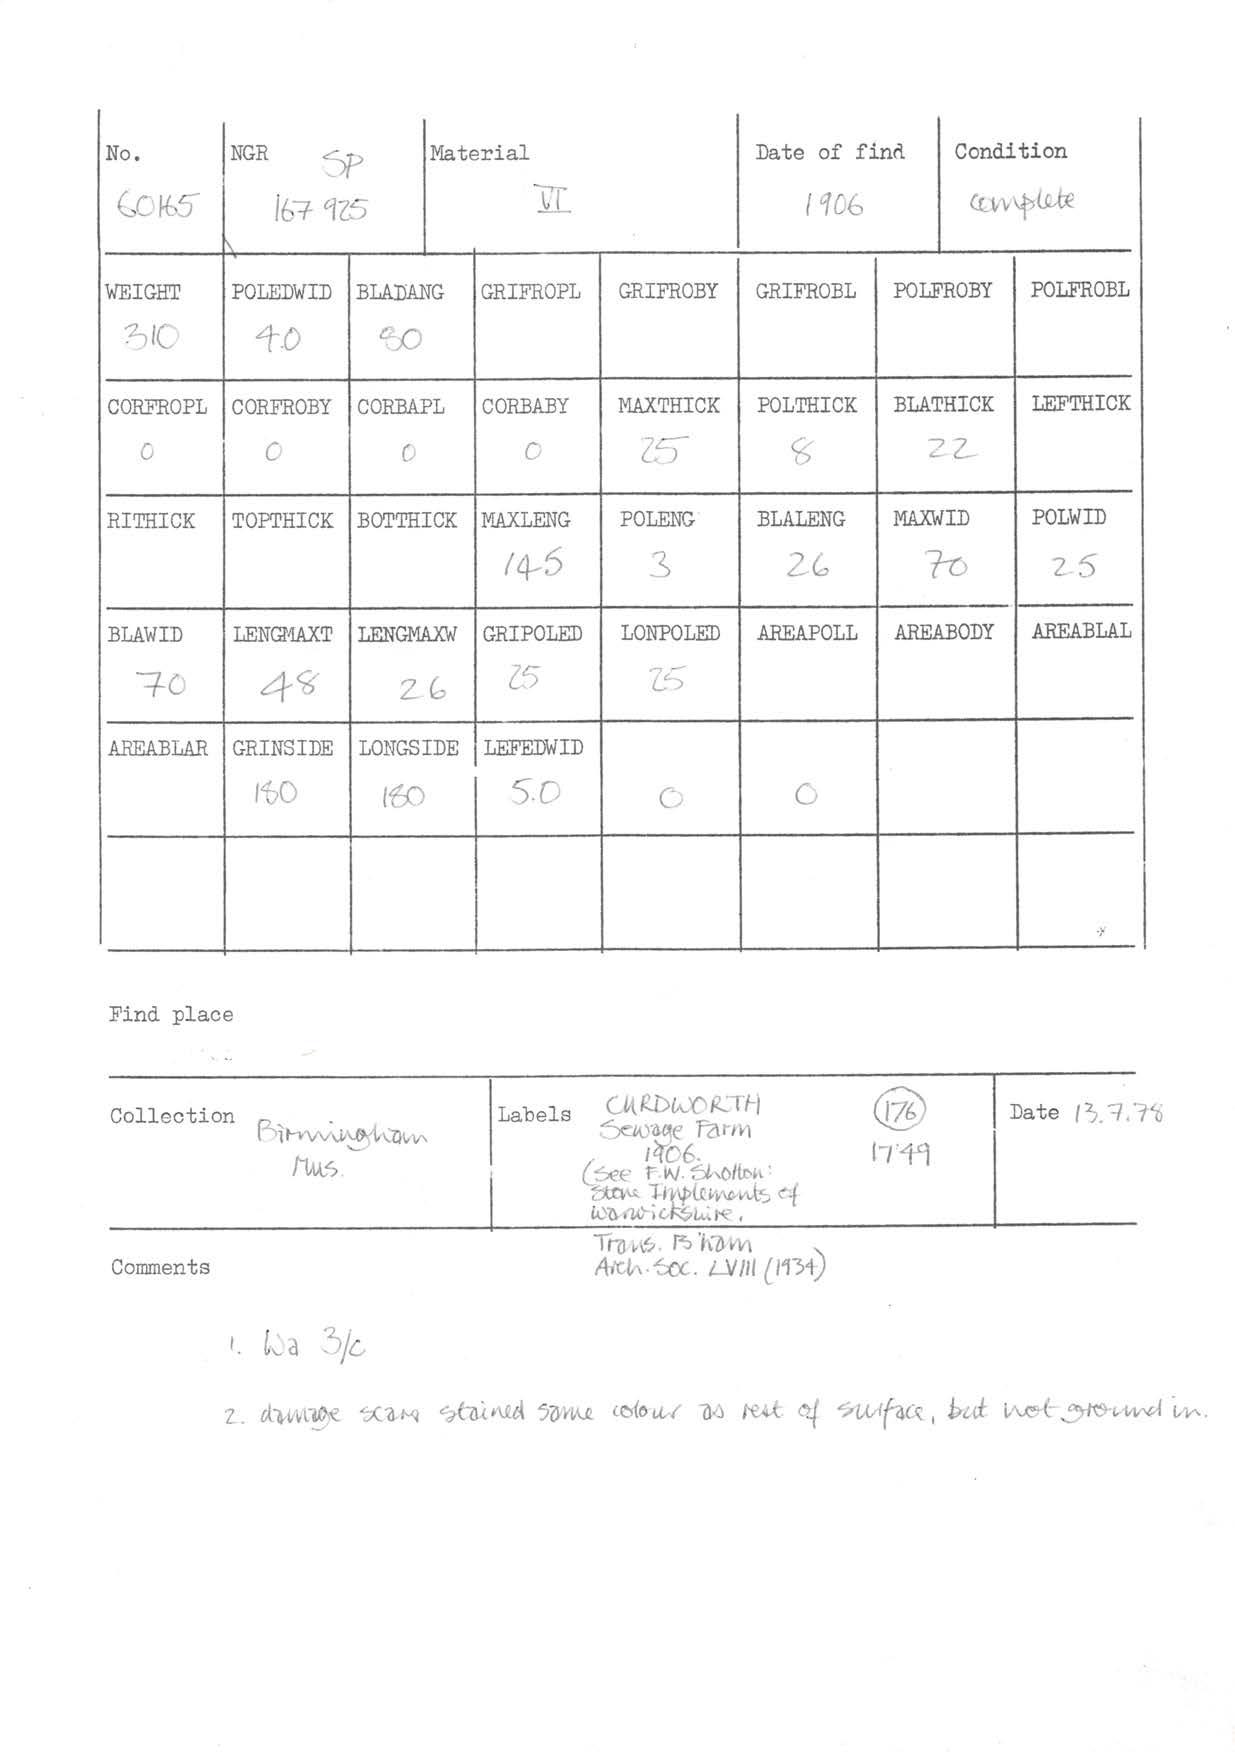 No. NGR SP Material Date of find Condition
60165 167 925 VI 1906 complete
WEIGHT POLEDWID BLADANG GRIFROPL GRIFROBY GRIFROBL POLFROBY POLFROBL
310 4.0 80
CORFROPL CORFROBY CORBAPL CORBABY MAXTHICK POLTHICK BLATHICK LEFTHICK
0 0 0 0 25 8 22
RITHICK TOPTHICK BOTTHICK MAXLENG POLENG BLALENG MAXWID POLWID
145 3 26 70 25
BLAWID LENGMAXT LENGMAXW GRIPOLED LONPOLED AREAPOLL AREABODY AREABLAL
70 48 26 25 25
AREABLAR GRINSIDE LONGSIDE LEFEDWID
180 180 5.0 0 0
Find place
Collection Birmingham
Mus.
Labels CURDWORTH
Sewage Farm
1906.
(See F.W. Shotton:
Stone Implements of
Warwickshire.
Trans. B'ham
Arch. Soc. LVIII (1934)
176
1749
Date 13.7.78
Comments
1. Wa 3/c
2. damage scars stained same colour as rest of surface, but not ground in.